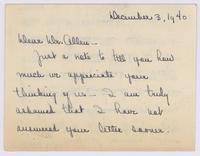 December 3, 1940
Dear Mr. Allen-
Just a note to tell you how
much we appreciate your
thinking of us - I am truly
ashamed that I have not
answered your letter sooner.